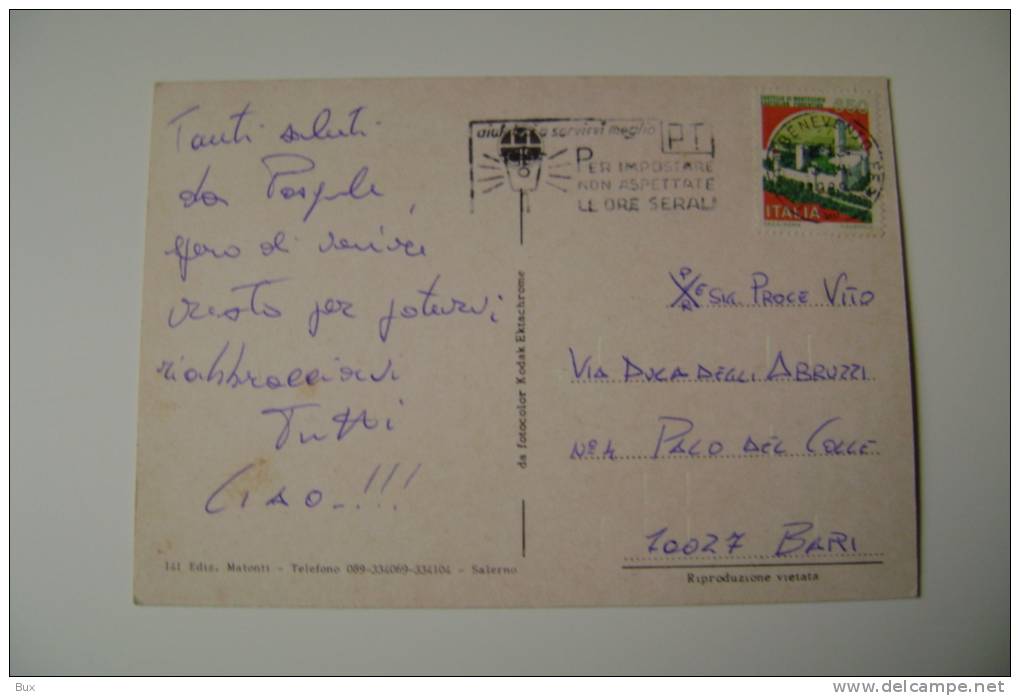 Tanti saluti
da Pasquale,
spero di venire
presto per potervi
riabbracciarvi
Tutti
Ciao..!!!
141 Ediz. Matonti - Telefono 089-334069-334104 - Salerno
da fotocolor Kodak Ektachrome
a servirvi meglio P.T.
PER IMPOSTARE
NON ASPETTATE
LE ORE SERALI
BENEVENTO
650
ITALIA
E SIG. PROCE VITO
VIA DUCA DEGLI ABRUZZI
Nº 4 PALO DEL COLLE
70027 BARI
Riproduzione vietata
Bux
www.delcampe.net